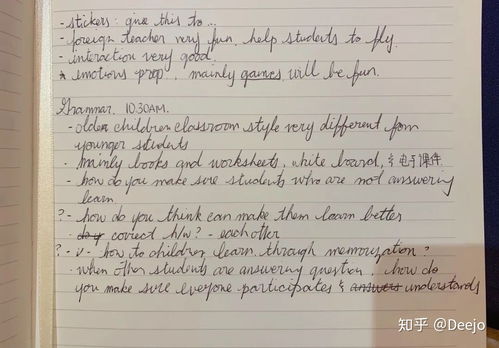 - stickers: give this to...
- foreign teacher very fun, help students to fly.
- interaction very good.
* emotions prop, mainly games will be fun.
Grammar. 10.30AM.
- older children classroom style very different from
younger students
- mainly books and worksheets, white board, & 电子课件
- how do you make sure students who are not answering
learn.
? - how do you think can make them learn better
- correct h/w? - each other
? - how to children learn through memorization?
- when other students are answering question, how do
you make sure everyone participates & answers understands
知乎 @Deejo